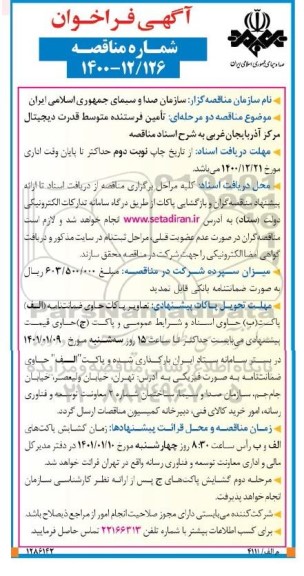 آگهی فراخوان
شماره مناقصه
۱۴۰۰-۱۲/۱۲۶
صدا و سیمای جمهوری اسلامی ایران
نام سازمان مناقصه‌گزار: سازمان صدا و سیمای جمهوری اسلامی ایران
موضوع مناقصه دو مرحله‌ای: تأمین فرستنده متوسط قدرت دیجیتال
مرکز آذربایجان‌غربی به شرح اسناد مناقصه
مهلت دریافت اسناد: از تاریخ چاپ نوبت دوم حداکثر تا پایان وقت اداری
مورخ ۱۴۰۰/۱۲/۲۱ می‌باشد.
محل دریافت اسناد: کلیه مراحل برگزاری مناقصه از دریافت اسناد تا ارائه
پیشنهاد مناقصه‌گران و بازگشایی پاکات از طریق درگاه سامانه تدارکات الکترونیکی
دولت (ستاد) به آدرس www.setadiran.ir انجام خواهد شد و لازم است
مناقصه‌گران در صورت عدم عضویت قبلی، مراحل ثبت‌نام در سایت مذکور و دریافت
گواهی امضا الکترونیکی را جهت شرکت در مناقصه محقق سازند.
میزان سپرده شرکت در مناقصه: مبلغ ۶۰۳/۵۰۰/۰۰۰ ریال
به صورت ضمانتنامه بانکی قابل تمدید
مهلت تحویل پاکات پیشنهادی: تصاویر پاکات حاوی ضمانتنامه (الف)
پاکت(ب) حاوی اسناد و شرایط عمومی و پاکت (ج) حاوی قیمت
پیشنهادی می‌بایست حداکثر تا ساعت ۱۵ روز سه‌شنبه مورخ ۱۴۰۱/۰۱/۰۹
در بستر سامانه ستاد ایران بارگذاری شده و پاکت "الف" حاوی
ضمانتنامه به صورت فیزیکی به آدرس: تهران، خیابان ولیعصر، خیابان
جام‌جم، سازمان صدا و سیما، ساختمان معاونت توسعه و فناوری
رسانه، امور خرید کالای فنی، دبیرخانه کمیسیون مناقصات ارسال گردد.
زمان مناقصه و محل قرائت پیشنهادها: زمان گشایش پاکت‌های
الف و ب رأس ساعت ۸:۳۰ روز چهارشنبه مورخ ۱۴۰۱/۰۱/۱۰ در دفتر مدیر کل
مالی و اداری معاونت توسعه و فناوری رسانه واقع در تهران قرائت خواهد شد.
مرحله دوم گشایش پاکت‌های ج پس از ارائه نظر کارشناسی سازمان
انجام خواهد پذیرفت.
شرکت‌کننده می‌بایستی دارای مجوز صلاحیت انجام امور از مراجع ذیصلاح باشد.
برای کسب اطلاعات بیشتر با شماره تلفن ۲۲۱۶۶۳۱۳ تماس حاصل فرمایید.
م الف/۴۱۱۱
۱۲۸۶۱۴۲